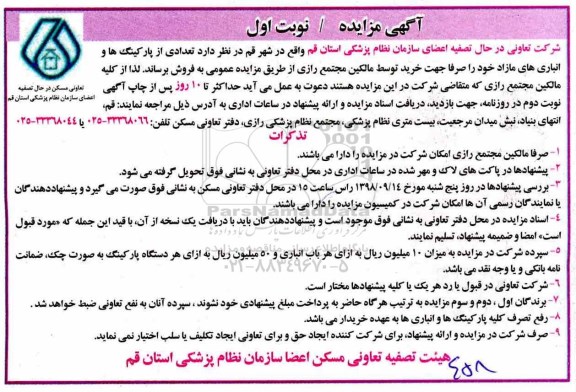 آگهی مزایده / نوبت اول
شرکت تعاونی در حال تصفیه اعضای سازمان نظام پزشکی استان قم واقع در شهر قم در نظر دارد تعدادی از پارکینگ ها و
انباری های مازاد خود را صرفا جهت خرید توسط مالکین مجتمع رازی از طریق مزایده عمومی به فروش برساند. لذا از کلیه
مالکین مجتمع رازی که متقاضی شرکت در این مزایده هستند دعوت به عمل می آید حداکثر تا ۱۰ روز پس از چاپ آگهی
نوبت دوم در روزنامه، جهت بازدید، دریافت اسناد مزایده و ارائه پیشنهاد در ساعات اداری به آدرس ذیل مراجعه نمایند: قم،
انتهای بنیاد، نبش میدان مرجعیت، بیست متری نظام پزشکی، مجتمع نظام پزشکی رازی، دفتر تعاونی مسکن تلفن: ۳۳۳۶۸۰۶۶-۰۲۵ یا ۳۳۳۶۸۰۴۴-۰۲۵
تعاونی مسکن در حال تصفیه
اعضای سازمان نظام پزشکی استان قم
تذکرات
۱- صرفا مالکین مجتمع رازی امکان شرکت در مزایده را دارا می باشند.
۲- پیشنهادها در پاکت های لاک و مهر شده در ساعات اداری در محل دفتر تعاونی به نشانی فوق تحویل گرفته می شود.
۳- بررسی پیشنهادها در روز پنج شنبه مورخ ۱۳۹۸/۰۹/۱۴ راس ساعت ۱۵ در محل دفتر تعاونی مسکن به نشانی فوق صورت می گیرد و پیشنهاددهندگان
یا نمایندگان رسمی آن ها امکان شرکت در کمیسیون مزایده را دارا می باشند.
۴- اسناد مزایده در محل دفتر تعاونی به نشانی فوق موجود است و پیشنهاددهندگان باید با دریافت یک نسخه از آن، با قید این جمله که «مورد قبول
است» امضا و ضمیمه پیشنهاد، تسلیم نمایند.
۵- سپرده شرکت در مزایده به میزان ۱۰ میلیون ریال به ازای هر باب انباری و ۵۰ میلیون ریال به ازای هر دستگاه پارکینگ به صورت چک، ضمانت
نامه بانکی و یا وجه نقد می باشد.
۶- شرکت تعاونی در قبول یا رد هر یک یا کلیه پیشنهادها مختار است.
۷- برندگان اول ، دوم و سوم مزایده به ترتیب هرگاه حاضر به پرداخت مبلغ پیشنهادی خود نشوند ، سپرده آنان به نفع تعاونی ضبط خواهد شد .
۸- رفع تصرف کلیه پارکینگ ها و انباری ها به عهده خریدار می باشد.
۹- صرف شرکت در مزایده و ارائه پیشنهاد، برای شرکت کننده ایجاد حق و برای تعاونی ایجاد تکلیف یا سلب اختیار نمی نماید.
هیئت تصفیه تعاونی مسکن اعضا سازمان نظام پزشکی استان قم
ParsNamadData
۰۲۱-۸۸۳۴۹۶۷۰-۵